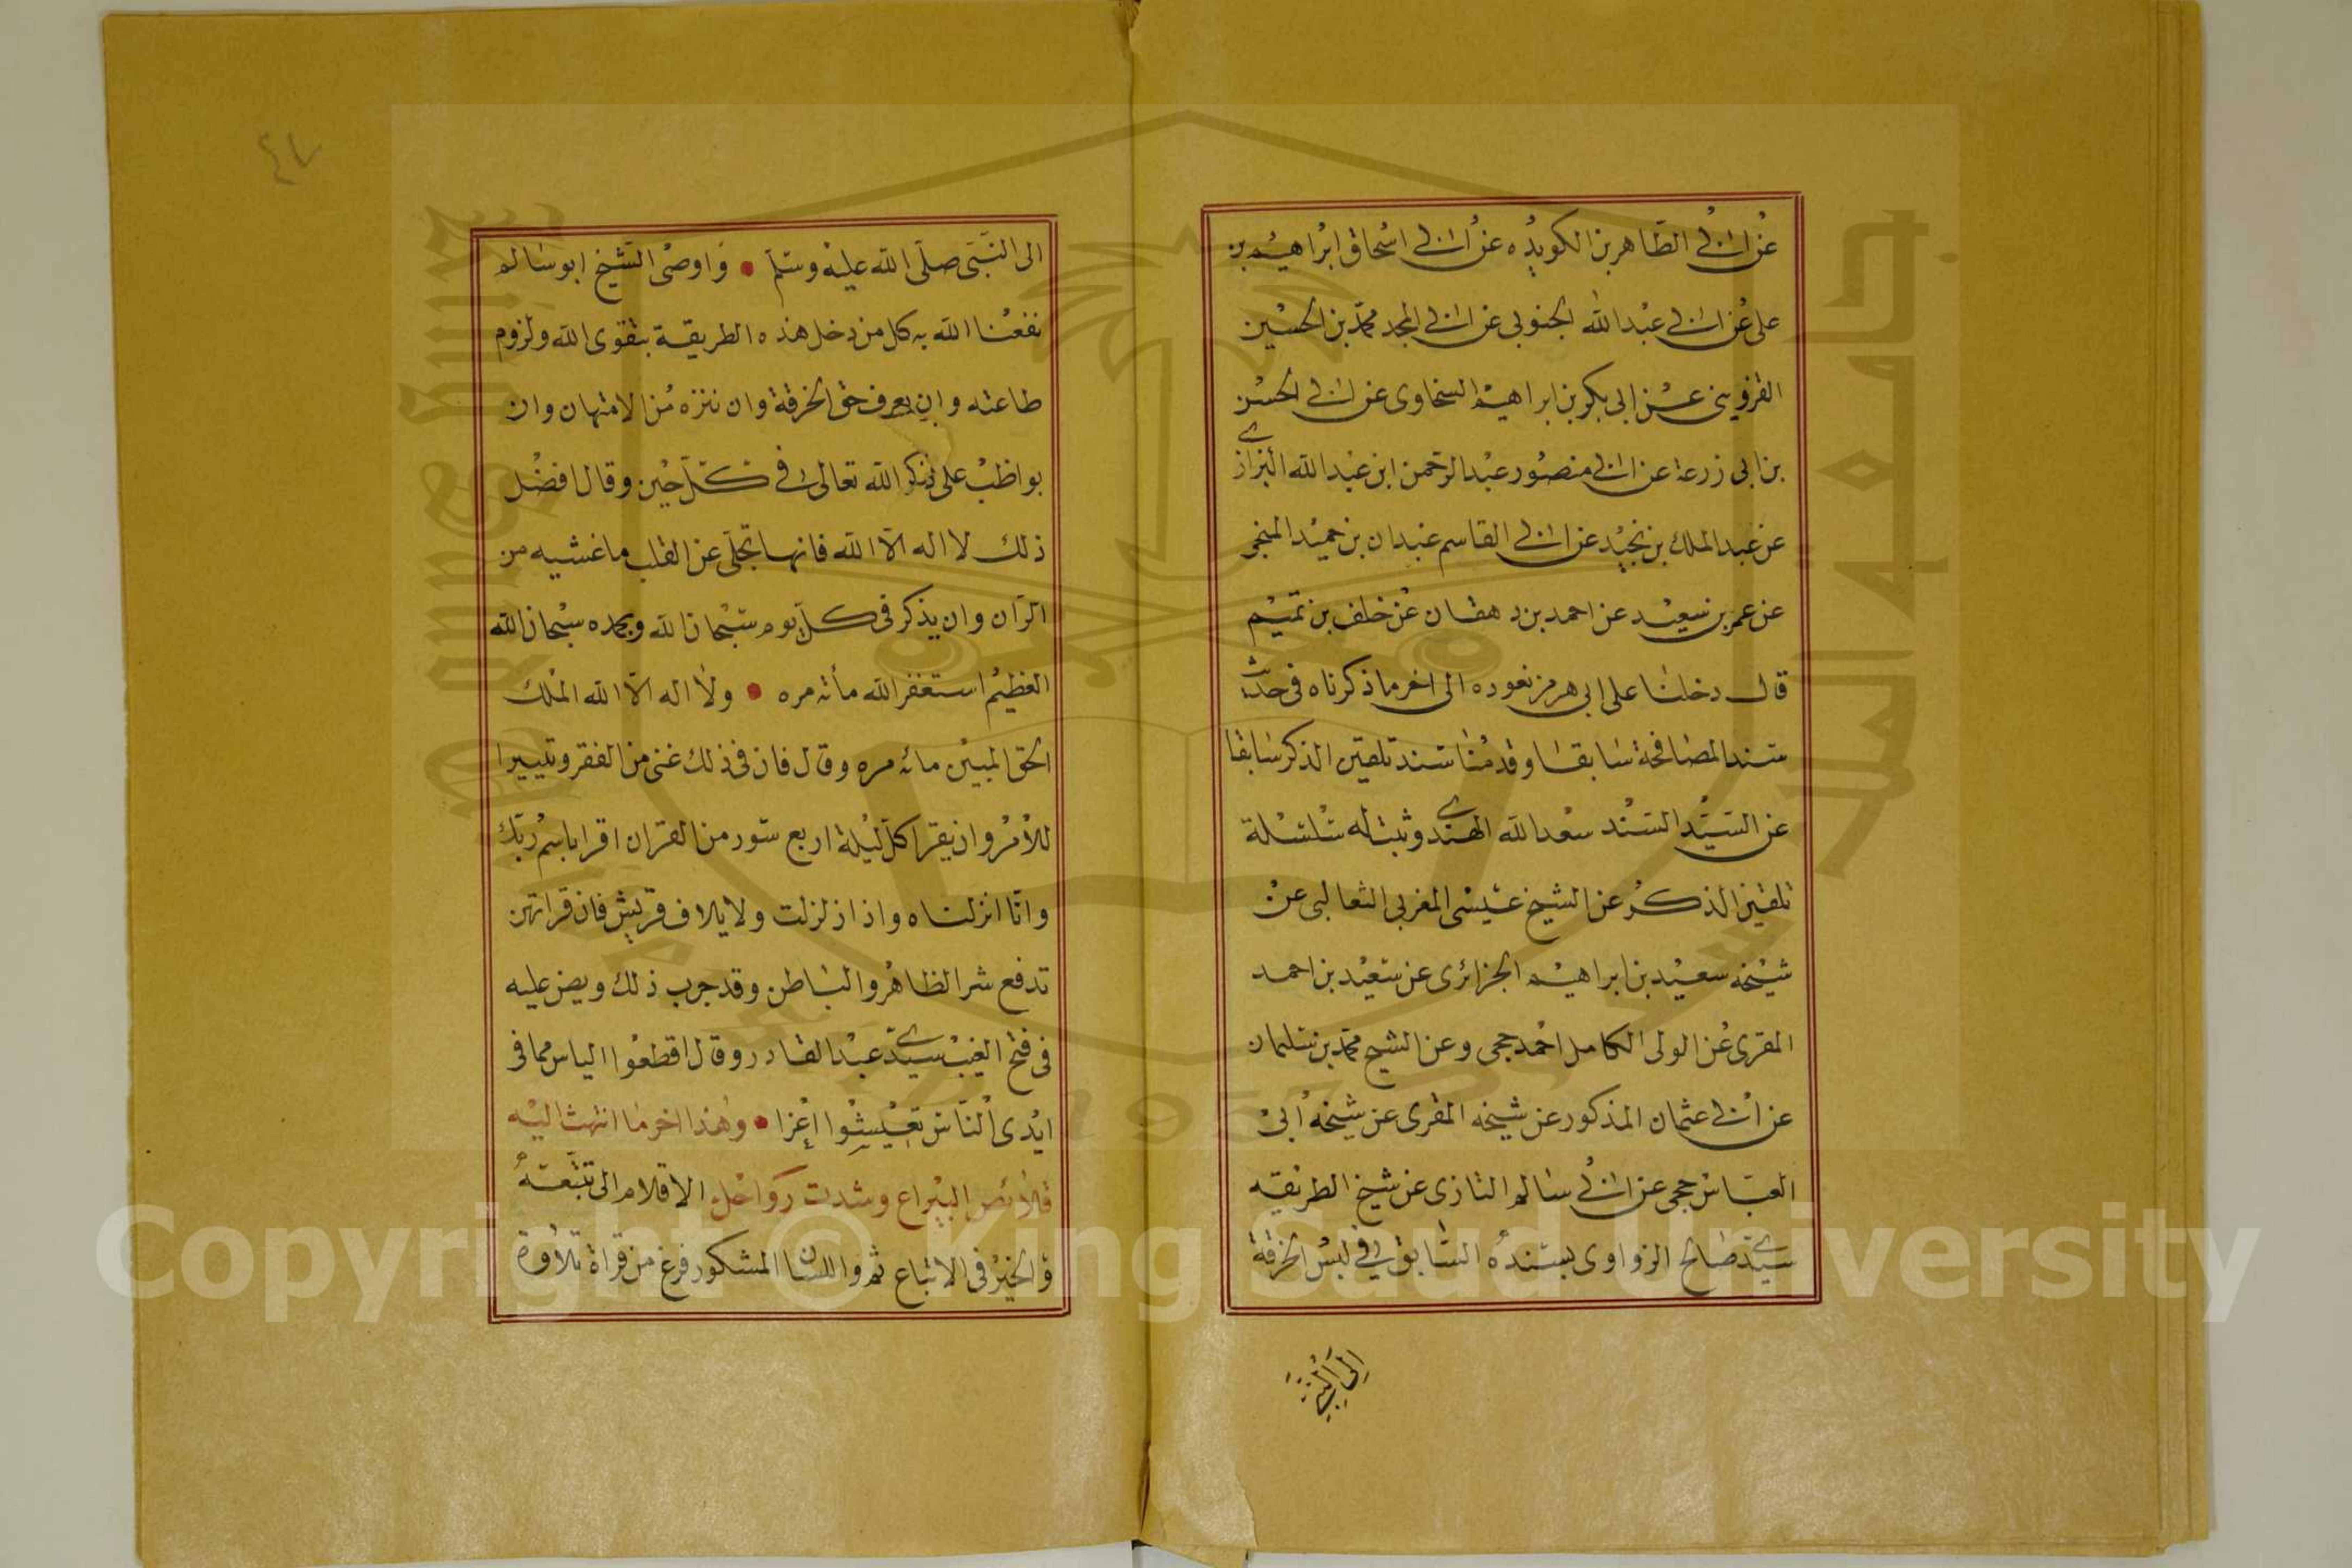 عن ابي الطاهر بن الكويده عن ابي اسحاق ابراهيم بن
على عن ابي عبد الله الجنوبى عن ابي المجد محمد بن الحسين
القزوينى عن ابى بكر بن ابراهيم السخاوى عن ابي الحسن
بن ابى زرعة عن ابي منصور عبد الرحمن ابن عبد الله البزازي
عن عبد الملك بن نجيد عن ابي القاسم عبدان بن حميد المنجى
عن عمر بن سعيد عن احمد بن دهقان عن خلف بن تميم
قال دخلنا على ابى هرمز نعوده الى اخر ما ذكرناه فى حديث
سند المصافحة سابقا وقدمنا سند تلقين الذكر سابقا
عن السيد السند سعد الله الهندي وثبت له سلسلة
تلقين الذكر عن الشيخ عيسى المغربى الثعالبى عن
شيخه سعيد بن ابراهيم الجزائرى عن سعيد بن احمد
المقرى عن الولى الكامل احمد حجى وعن الشيخ محمد بن سليمان
عن ابي عثمان المذكور عن شيخه المقرى عن شيخه ابى
العباس حجى عن ابي سالم التازى عن شيخ الطريقه
سيدي صالح الزواوى بسنده السابق في لبس الخرقة
الى النبى
٤٧
الى النبى صلى الله عليه وسلم • واوصى الشيخ ابو سالم
نفعنا الله به كل من دخل هذه الطريقة بتقوى الله ولزوم
طاعته وان يعرف حق الخرقة وان ننزه من الامتهان وان
يواظب على ذكر الله تعالى في كل حين وقال افضل
ذلك لا اله الا الله فانها تجلى عن القلب ما غشيه من
الران وان يذكر فى كل يوم سبحان الله وبحمده سبحان الله
العظيم استغفر الله مأته مره • ولا اله الا الله الملك
الحق المبين مائه مره وقال فان فى ذلك غنى من الفقر وتيسيرا
للأمر وان يقرا كل ليلة اربع سور من القران اقرا باسم ربك
وانا انزلناه واذا زلزلت ولايلاف قريش فان قراتهن
تدفع شر الظاهر والباطن وقد جرب ذلك ونص عليه
فى فتح الغيب سيدي عبد القادر وقال اقطعوا الياس مما فى
ايدى الناس تعيشوا اعزا • وهذا اخر ما انتهت اليه
قلائص اليراع وشدت رواحل الاقلام الى تتبعه
والخير فى الاتباع ثم واللسان المشكور فرغ من قراة تلاوة
Copyright © King Saud University